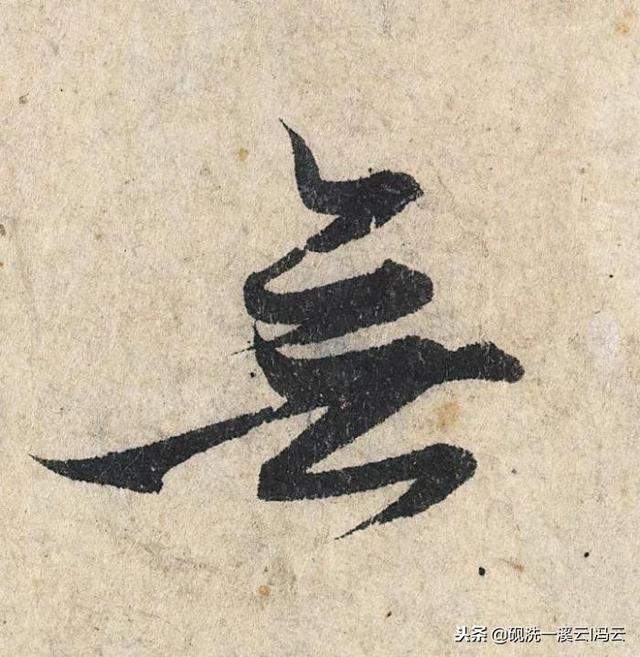 無
头条 @砚洗一溪云l冯云